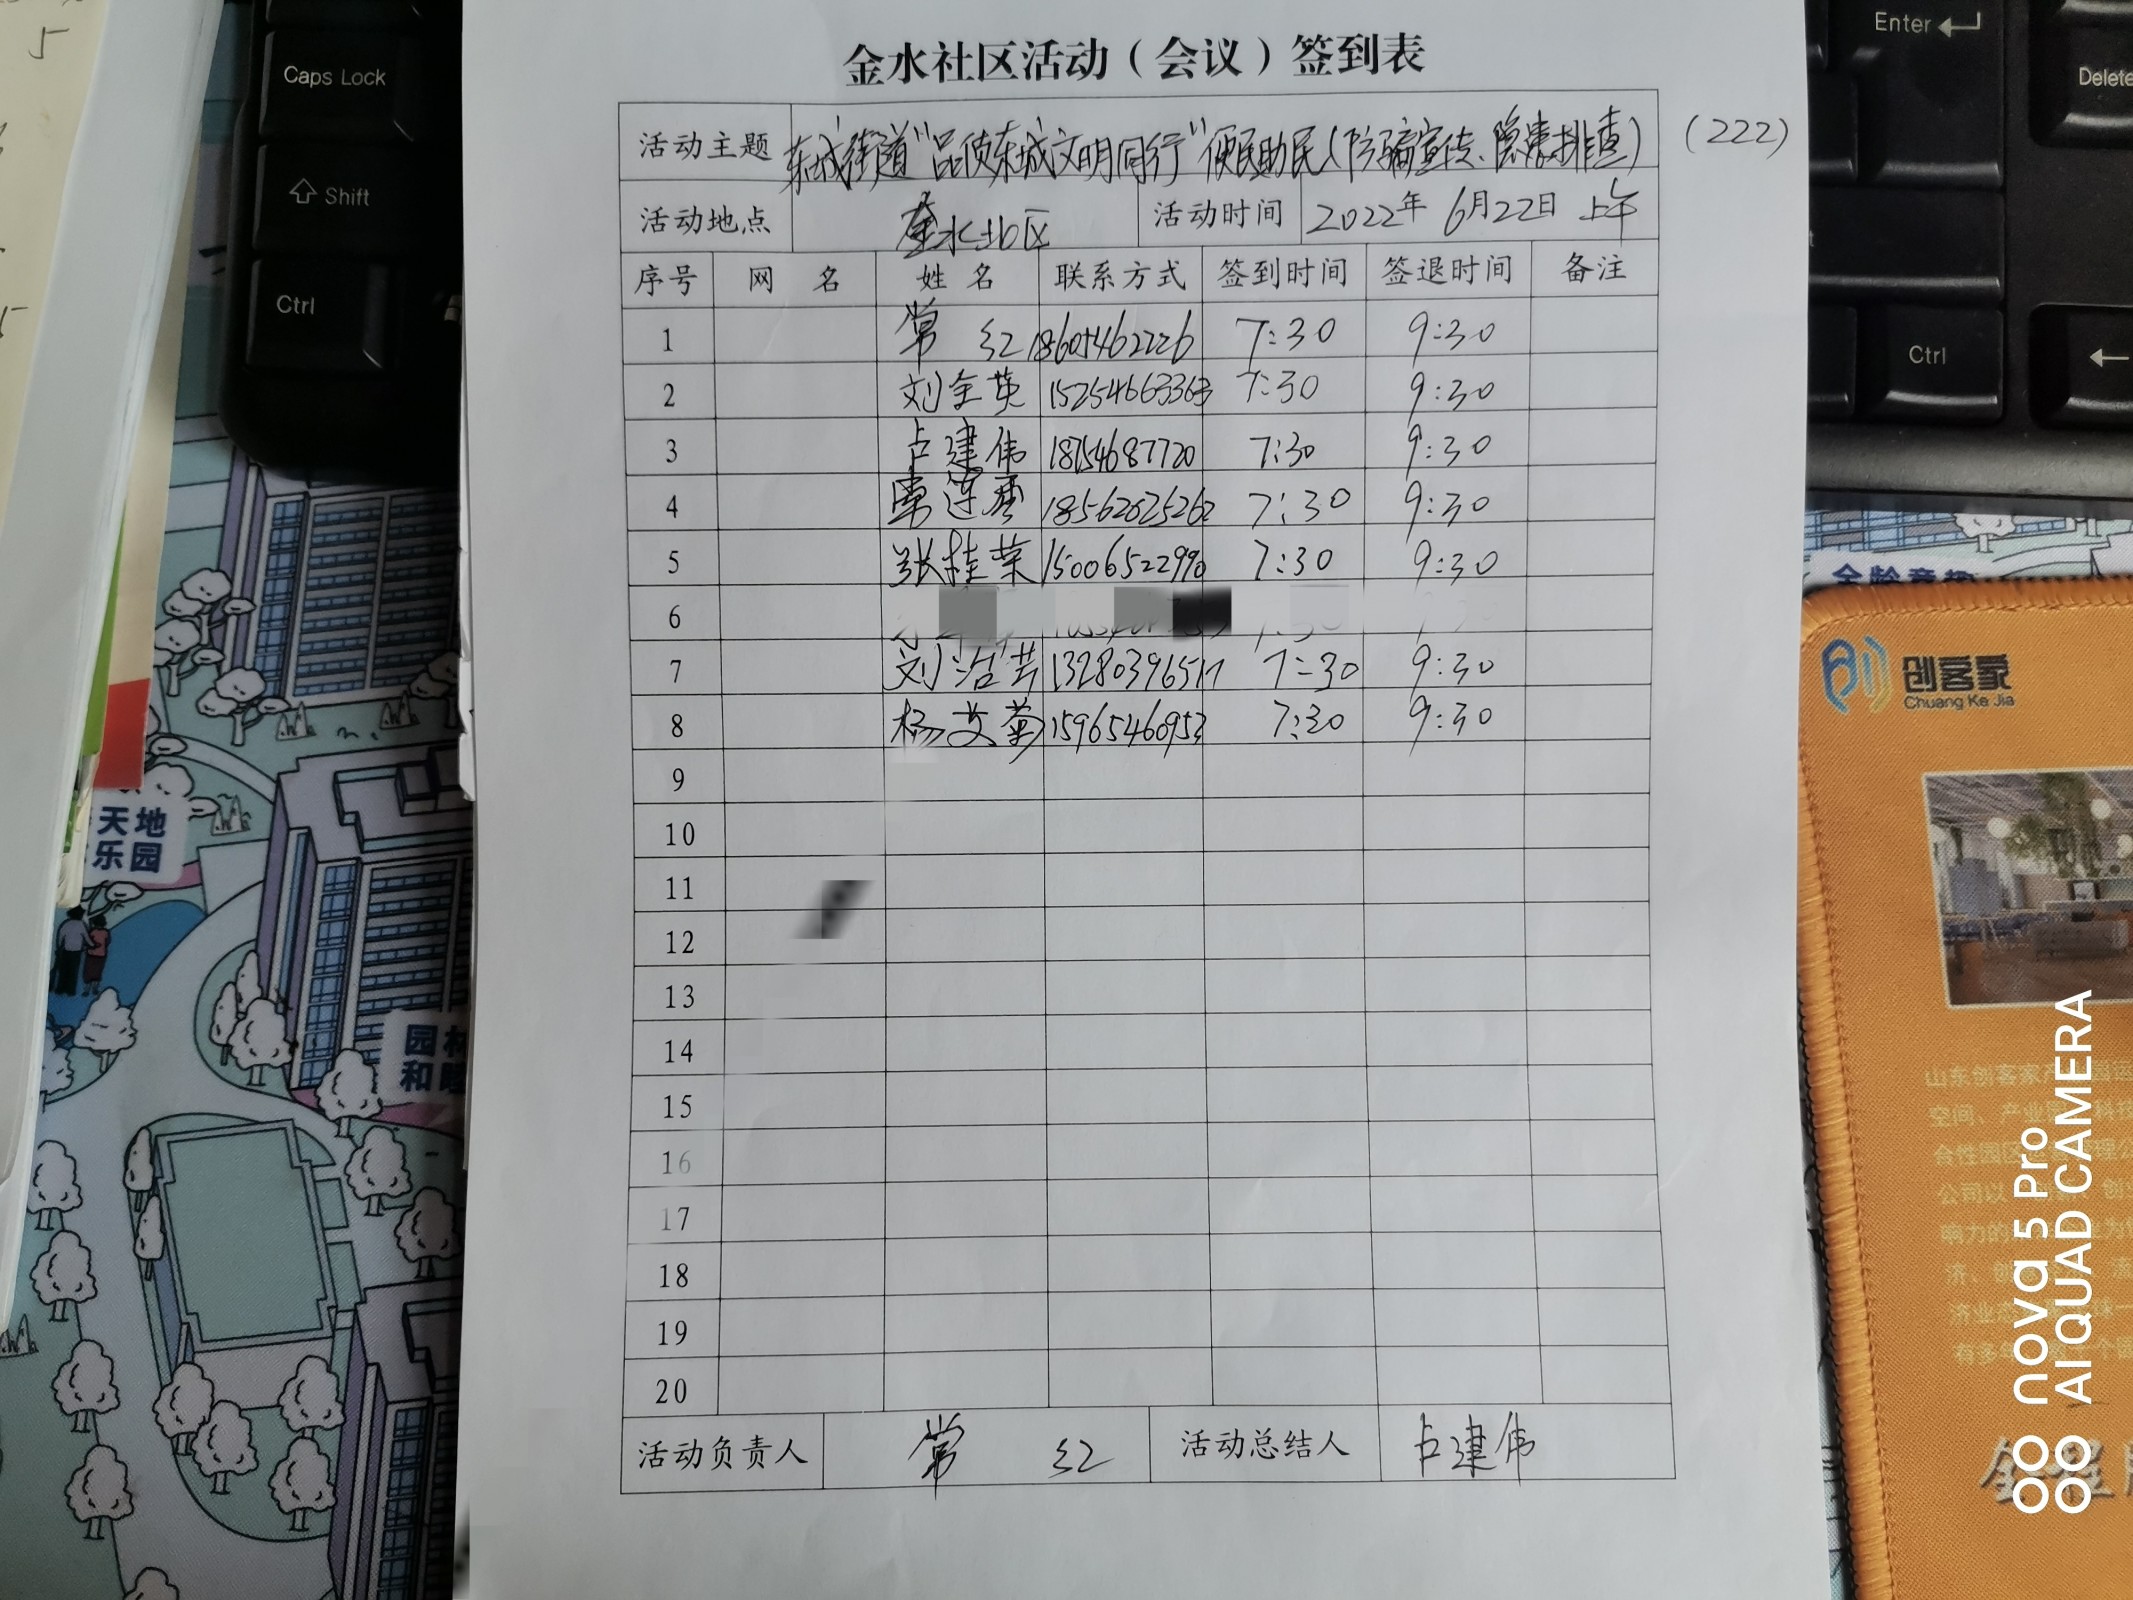 5
Caps Lock
Shift
Ctrl
Enter
Delete
Ctrl
金水社区活动（会议）签到表
(222)
活动主题 东城街道"品质东城文明同行"便民助民(防骗宣传、隐患排查)
活动地点 金水北区 活动时间 2022年 6月22日 上午
序号 网 名 姓 名 联系方式 签到时间 签退时间 备注
1 常 红 18605462226 7:30 9:30
2 刘金英 15254663363 7:30 9:30
3 占建伟 18754687720 7:30 9:30
4 18562625262 7:30 9:30
5 张桂荣 15006522990 7:30 9:30
6
7 刘治芳 13280396517 7:30 9:30
8 杨艾菊 15965460953 7:30 9:30
9
10
11
12
13
14
15
16
17
18
19
20
活动负责人 常 红 活动总结人 占建伟
天地
乐园
园林
和睦
全龄童趣
创客家
Chuang Ke Jia
山东创客家
空间、产业
合性园区
公司以
响力的
济、创
济业态
有多年
nova 5 Pro
AI QUAD CAMERA